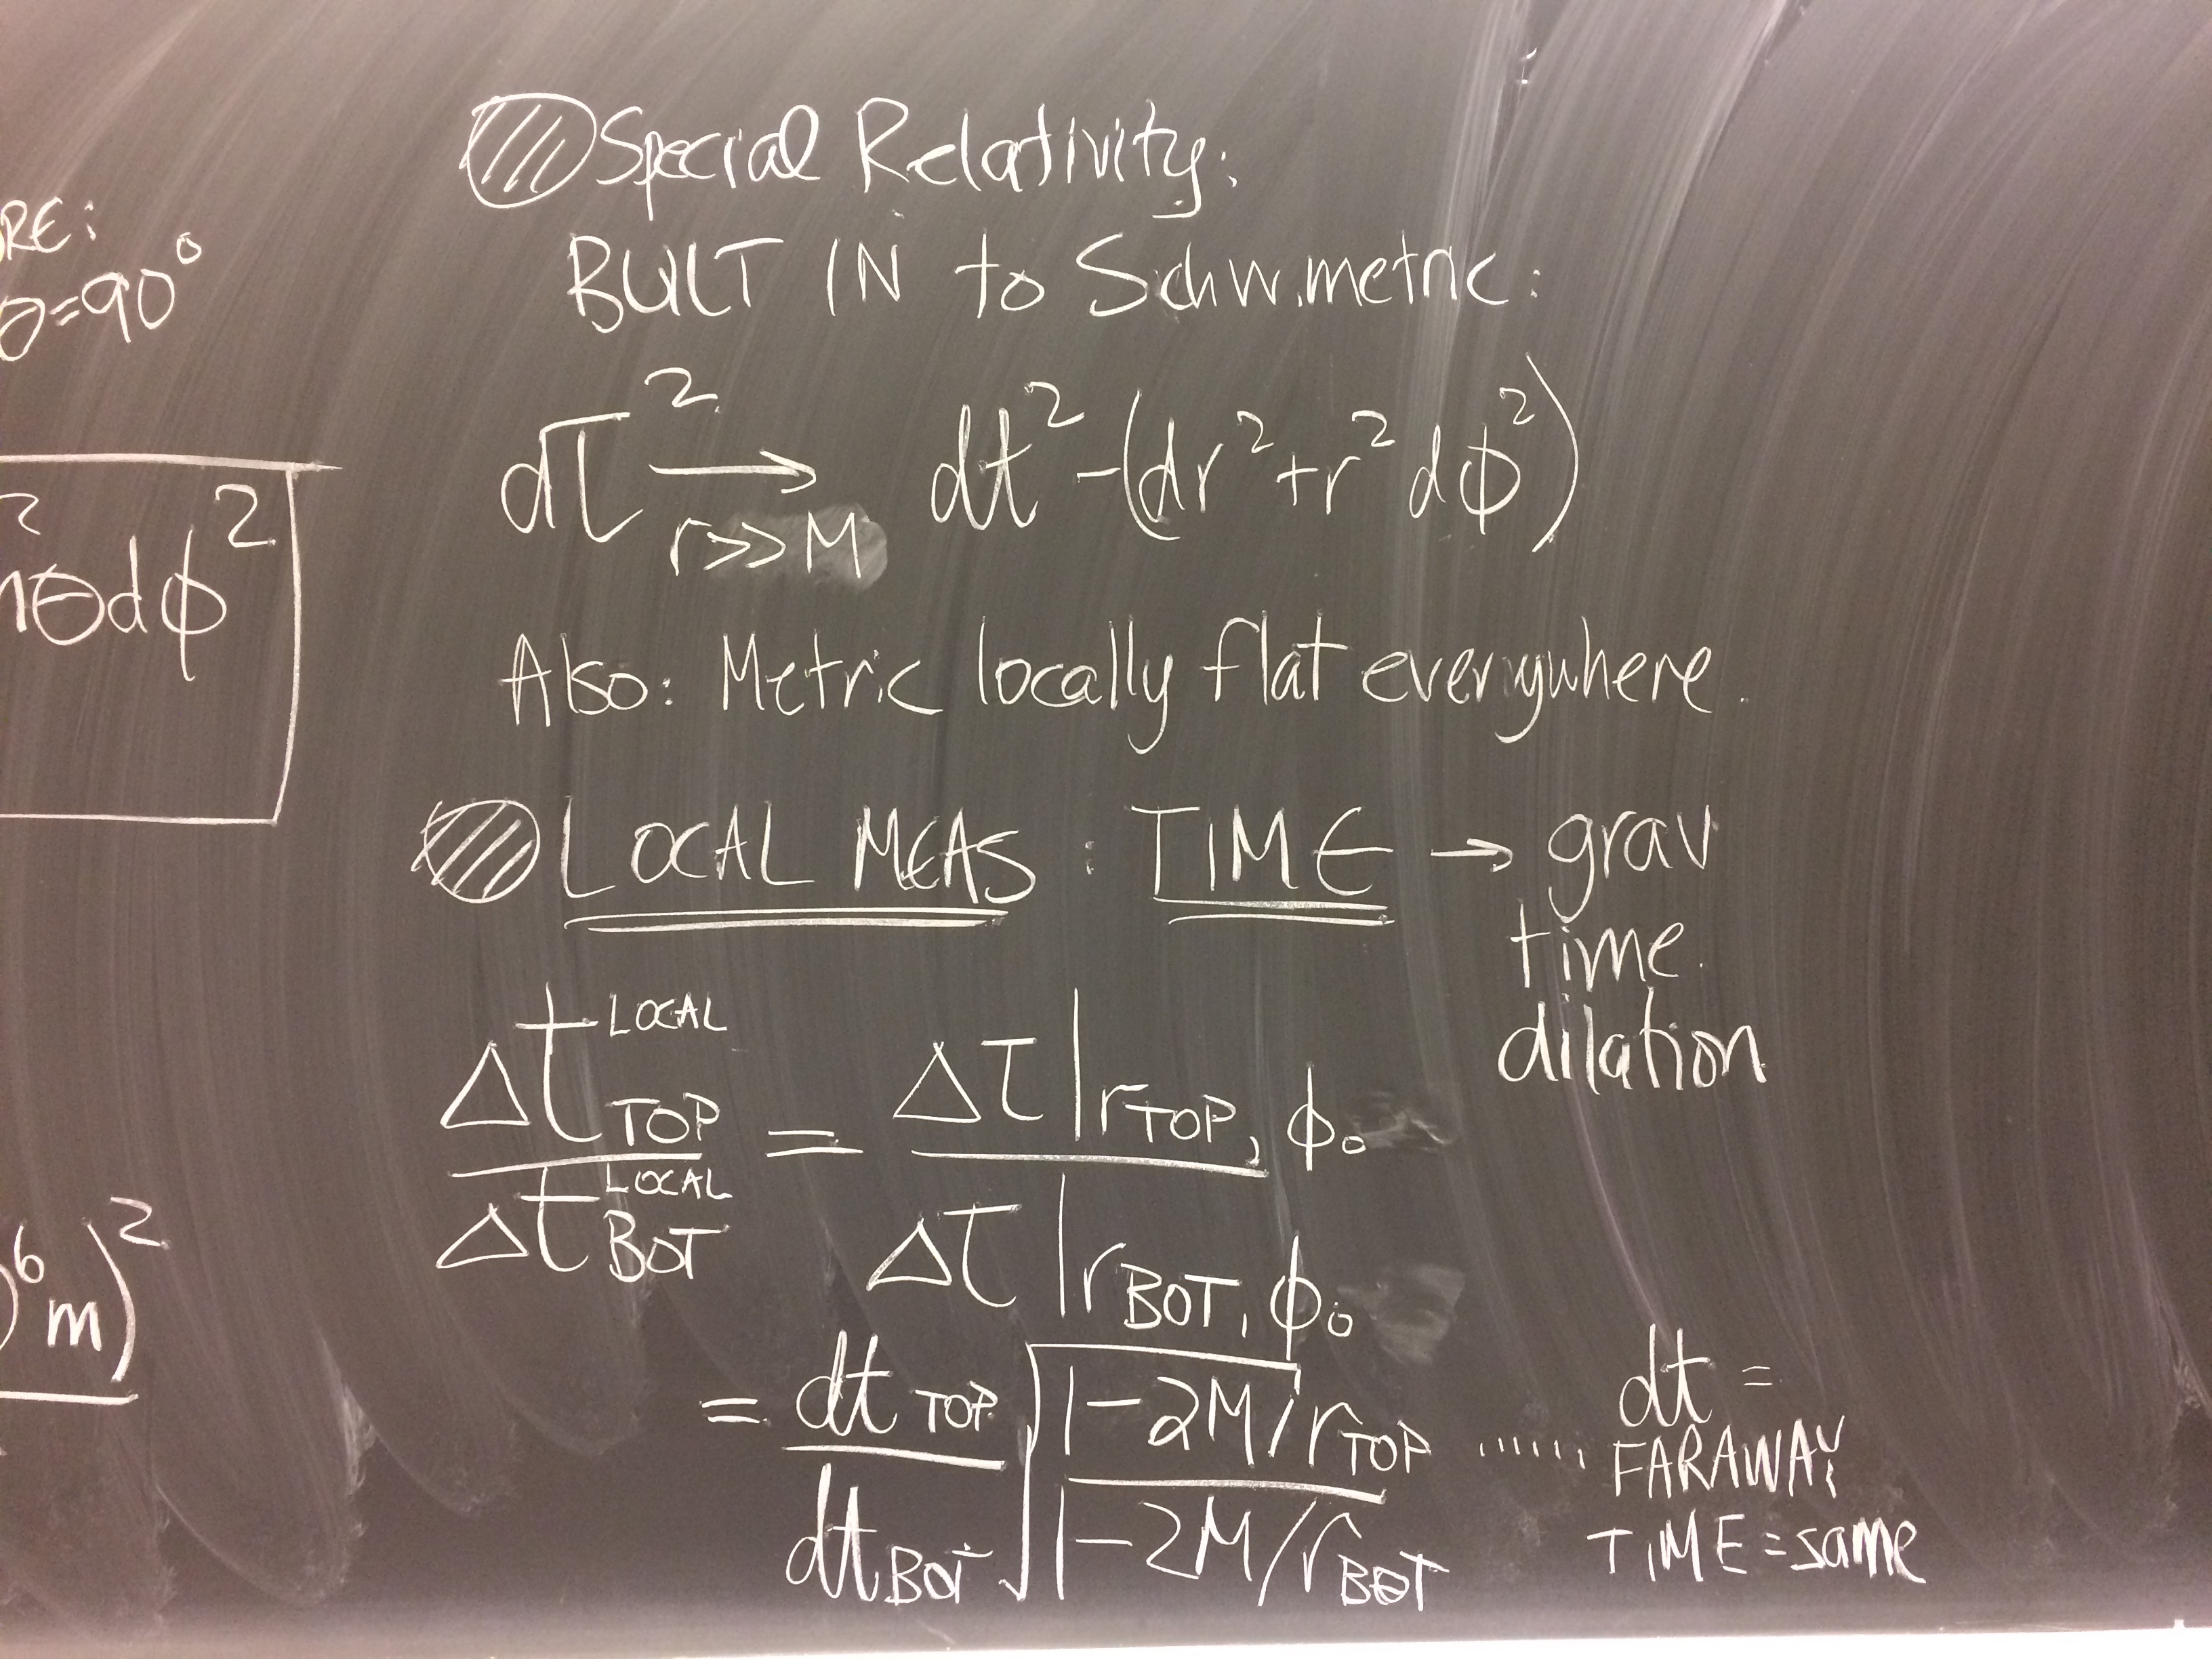 RE:
θ=90°
2
nθdφ²
)⁶m)²
Special Relativity:
BUILT IN to Schw. metric:
dτ² → dt² - (dr² + r² dφ²)
r>>M
Also: Metric locally flat everywhere.
LOCAL MEAS : TIME → grav
time
dilation
Δt LOCAL TOP / Δt LOCAL BOT = Δτ|r TOP, φ₀ / Δτ|r BOT, φ₀
= dt TOP / dt BOT √ 1-2M/r TOP / 1-2M/r BOT ......
dt =
FARAWAY
TIME = same